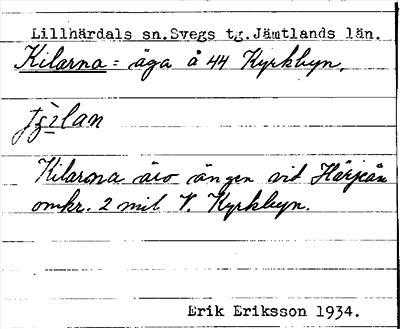 Lillhärdals sn. Svegs tg. Jämtlands län.
Kilarna = äga å 44 Kyrkbyn.
Kilarna äro ängen vid Härjeån
omkr. 2 mil V. Kyrkbyn.
Erik Eriksson 1934.